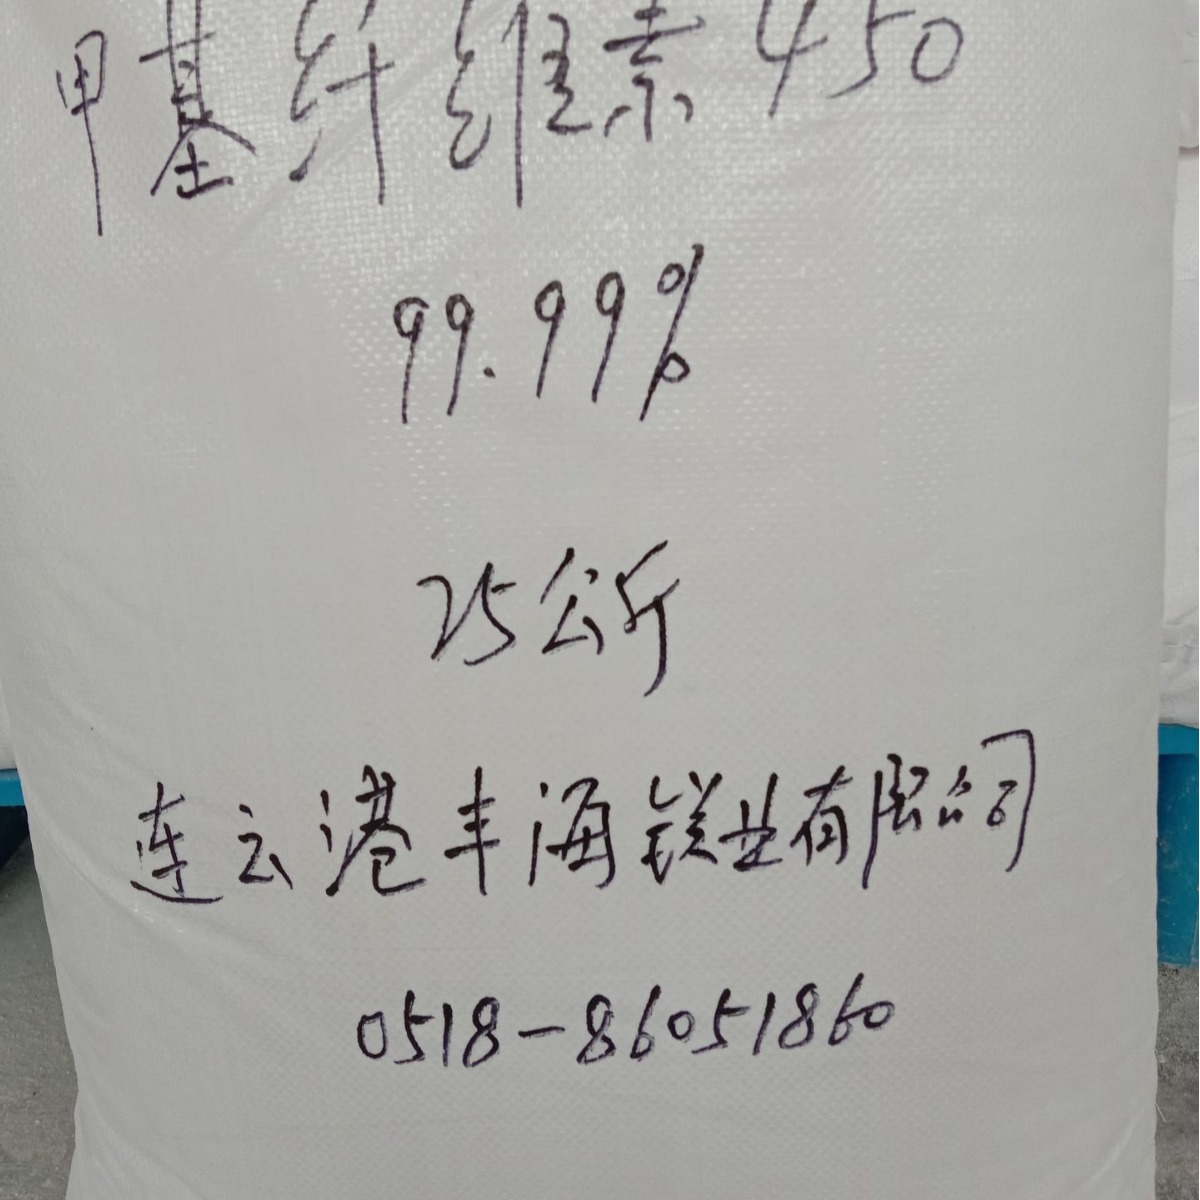 甲基纤维素450
99.99%
25公斤
连云港丰海镁业有限公司
0518-86051860